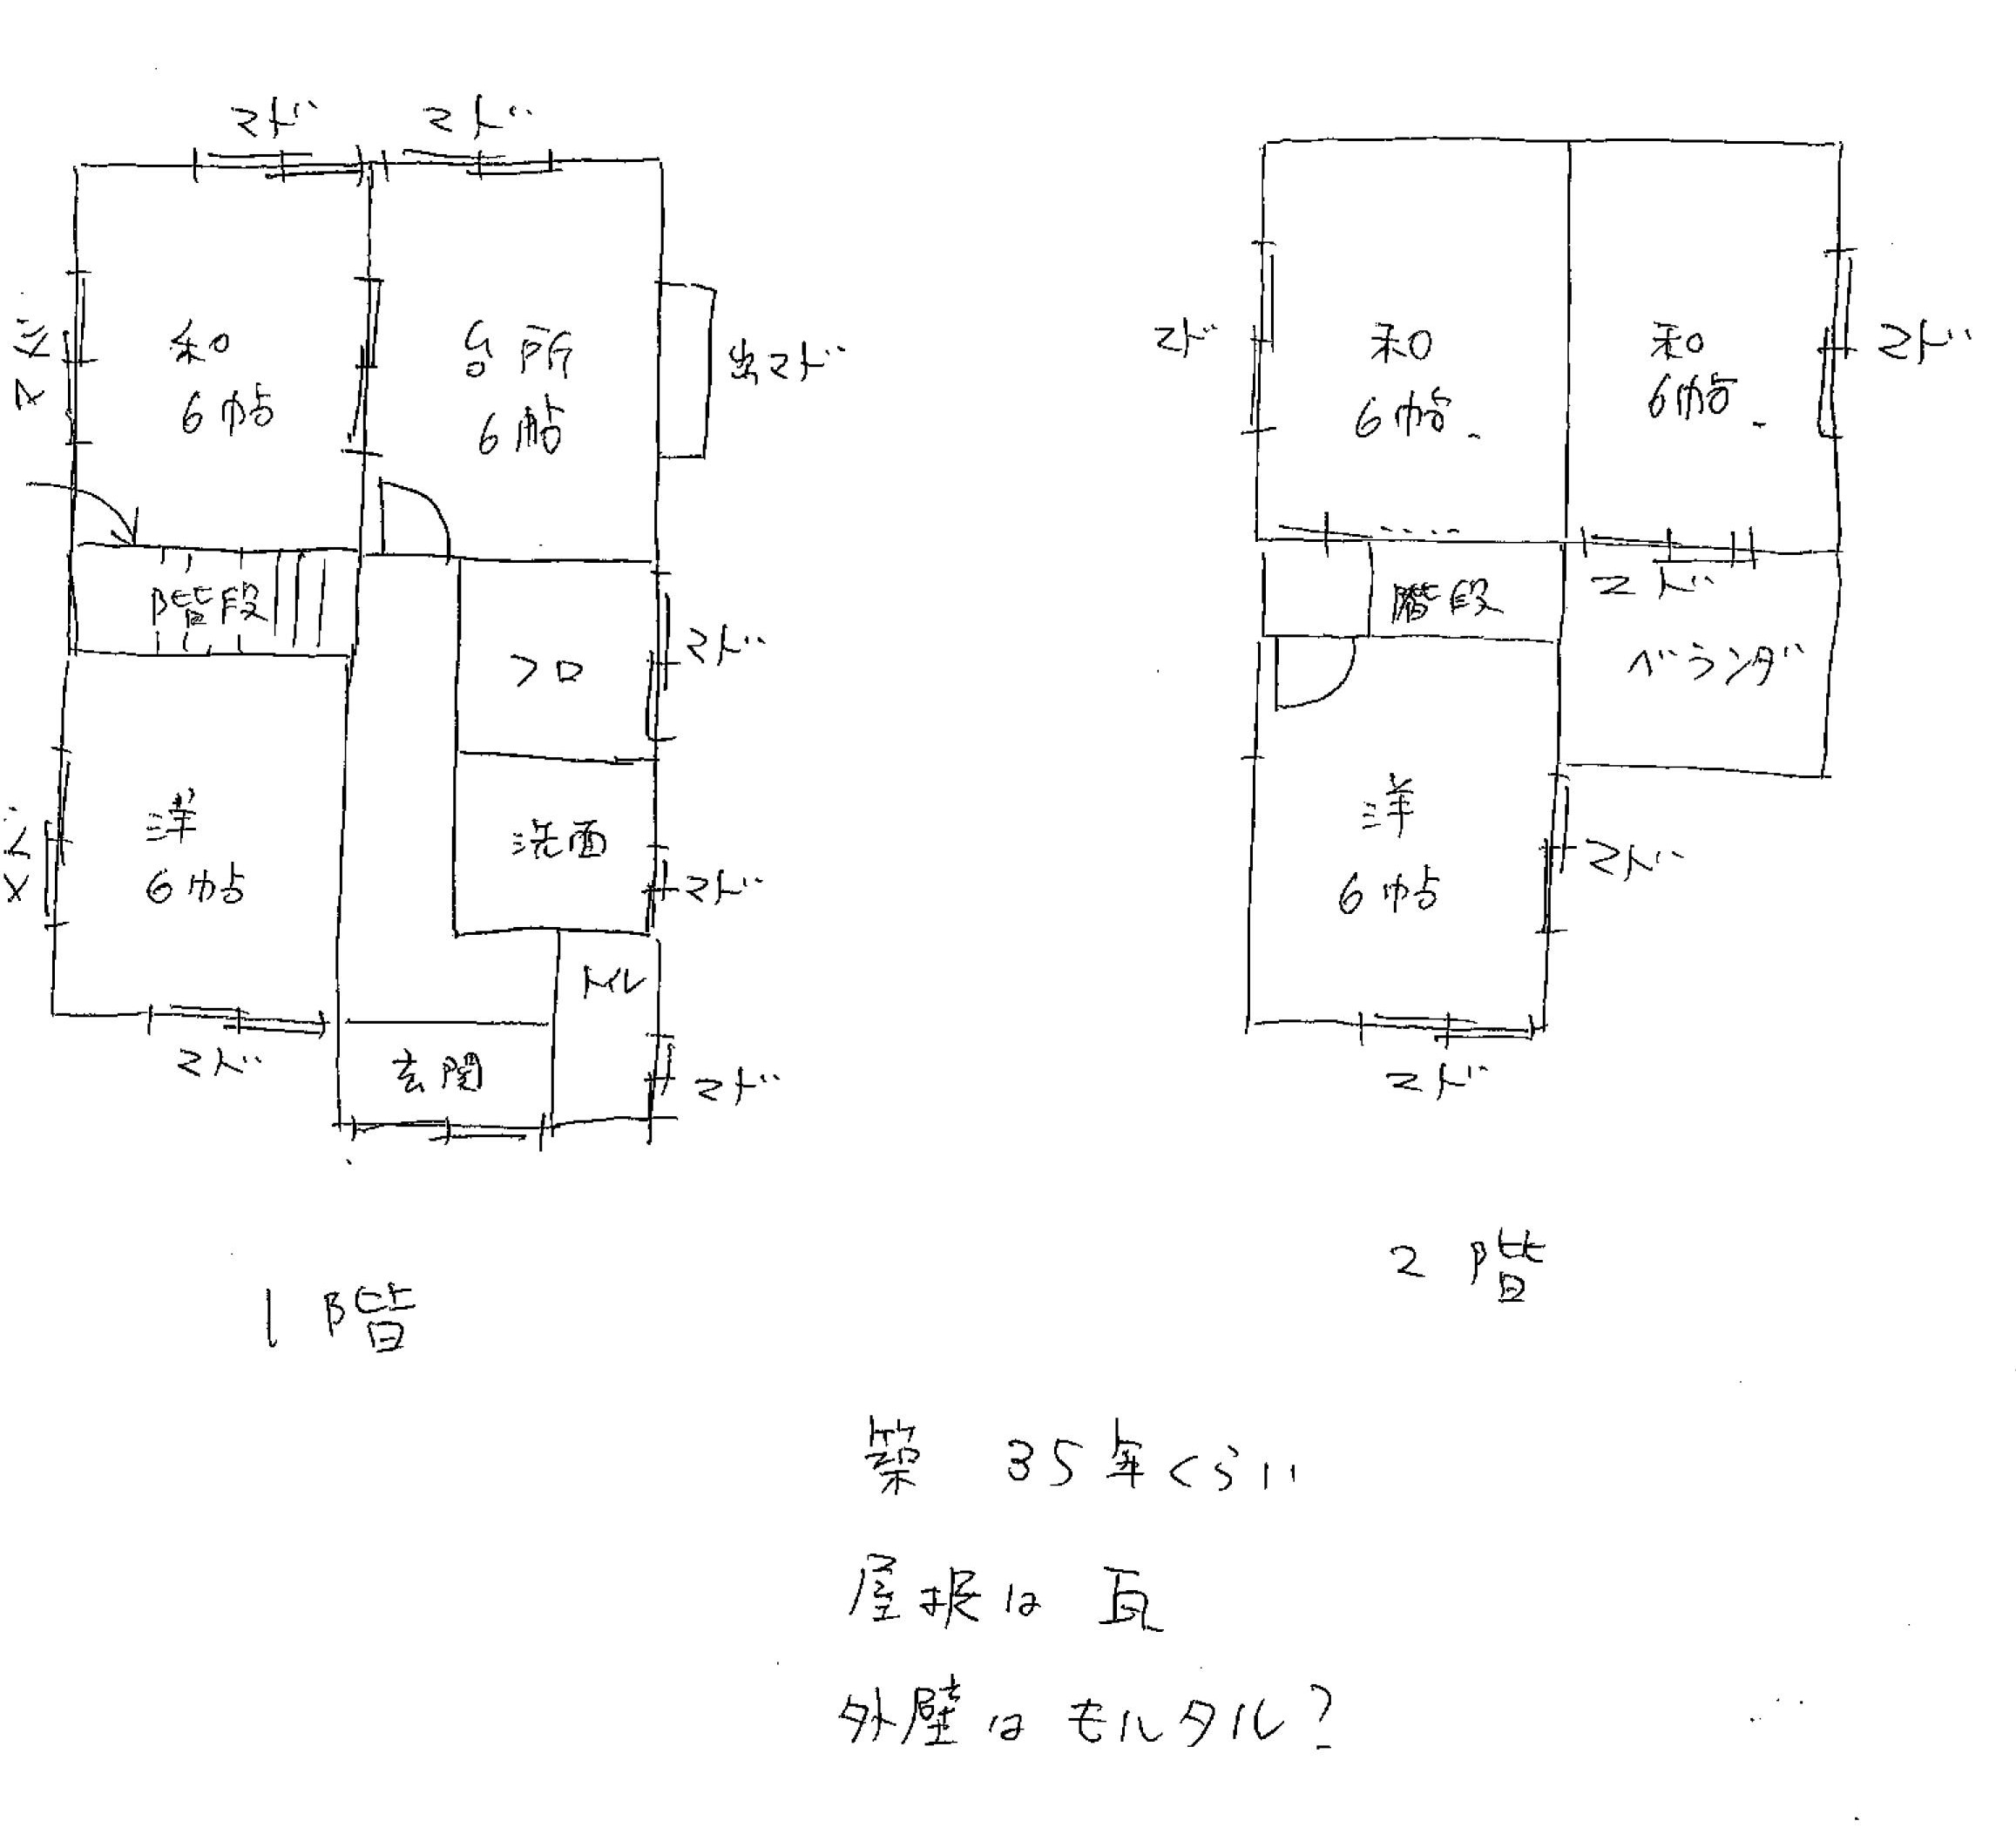 マド
マド
マド
和
6帖
台所
6帖
出マド
階段
フロ
マド
洗面
マド
マド
洋
6帖
マド
トイレ
玄関
マド
1階
マド
和
6帖
和
6帖
マド
マド
階段
ベランダ
洋
6帖
マド
マド
2階
築 35年くらい
屋根は 瓦
外壁は モルタル?